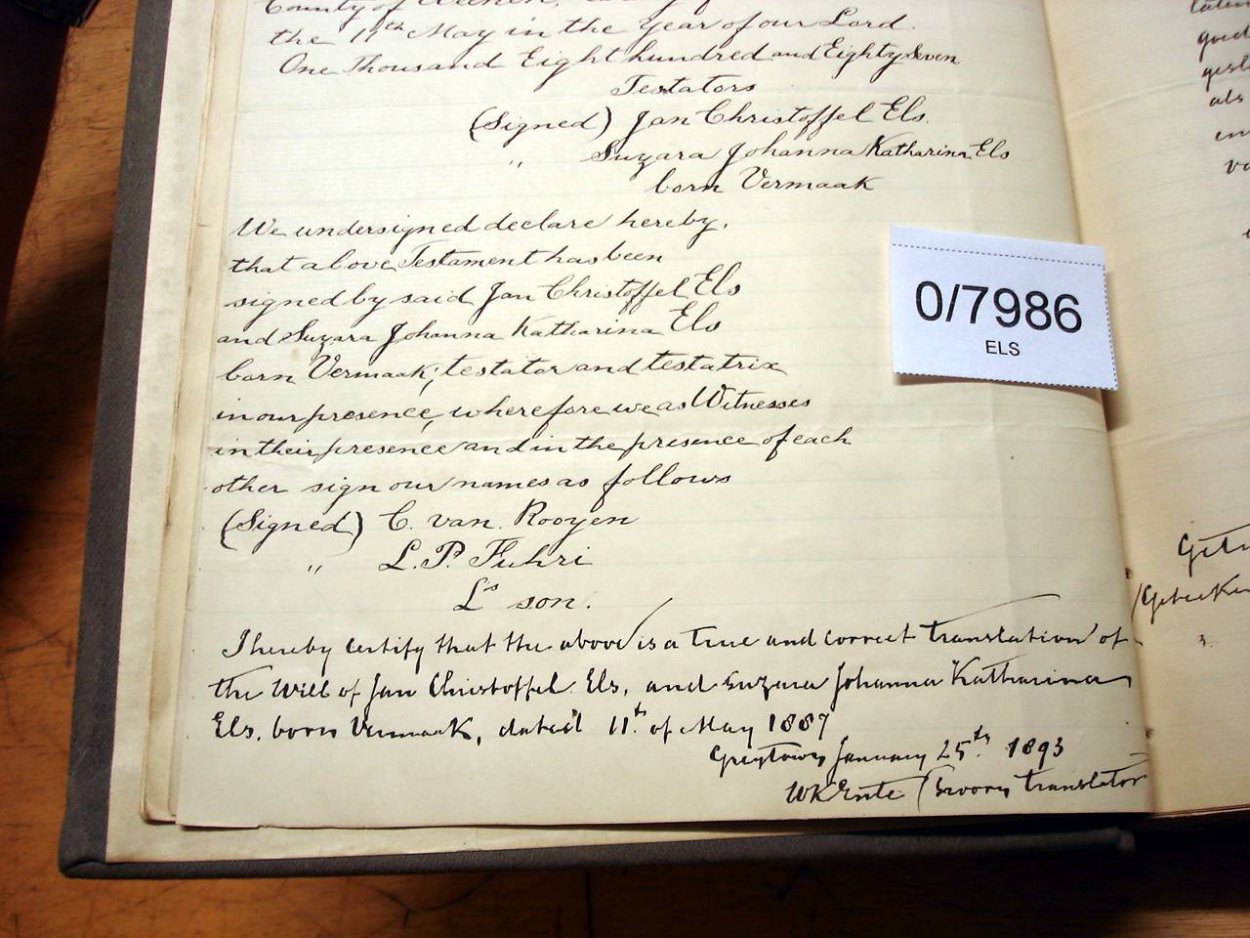 County of Weenen,
the 11th May in the Year of our Lord.
One Thousand Eight hundred and Eighty Seven
Testators
(Signed) Jan Christoffel Els.
" Suzara Johanna Katharina Els
born Vermaak
We undersigned declare hereby,
that above Testament has been
signed by said Jan Christoffel Els
and Suzara Johanna Katharina Els
born Vermaak, testator and testatrix
in our presence, wherefore we as Witnesses
in their presence and in the presence of each
other sign our names as follows
(Signed) C. van Rooyen
" L. P. Fuhri
Ls son.
I hereby certify that the above is a true and correct translation of
the Will of Jan Christoffel Els, and Suzara Johanna Katharina
Els, born Vermaak, dated 11th of May 1887
Greytown January 25th 1893
WK Ente (Sworn translator
0/7986
ELS
als